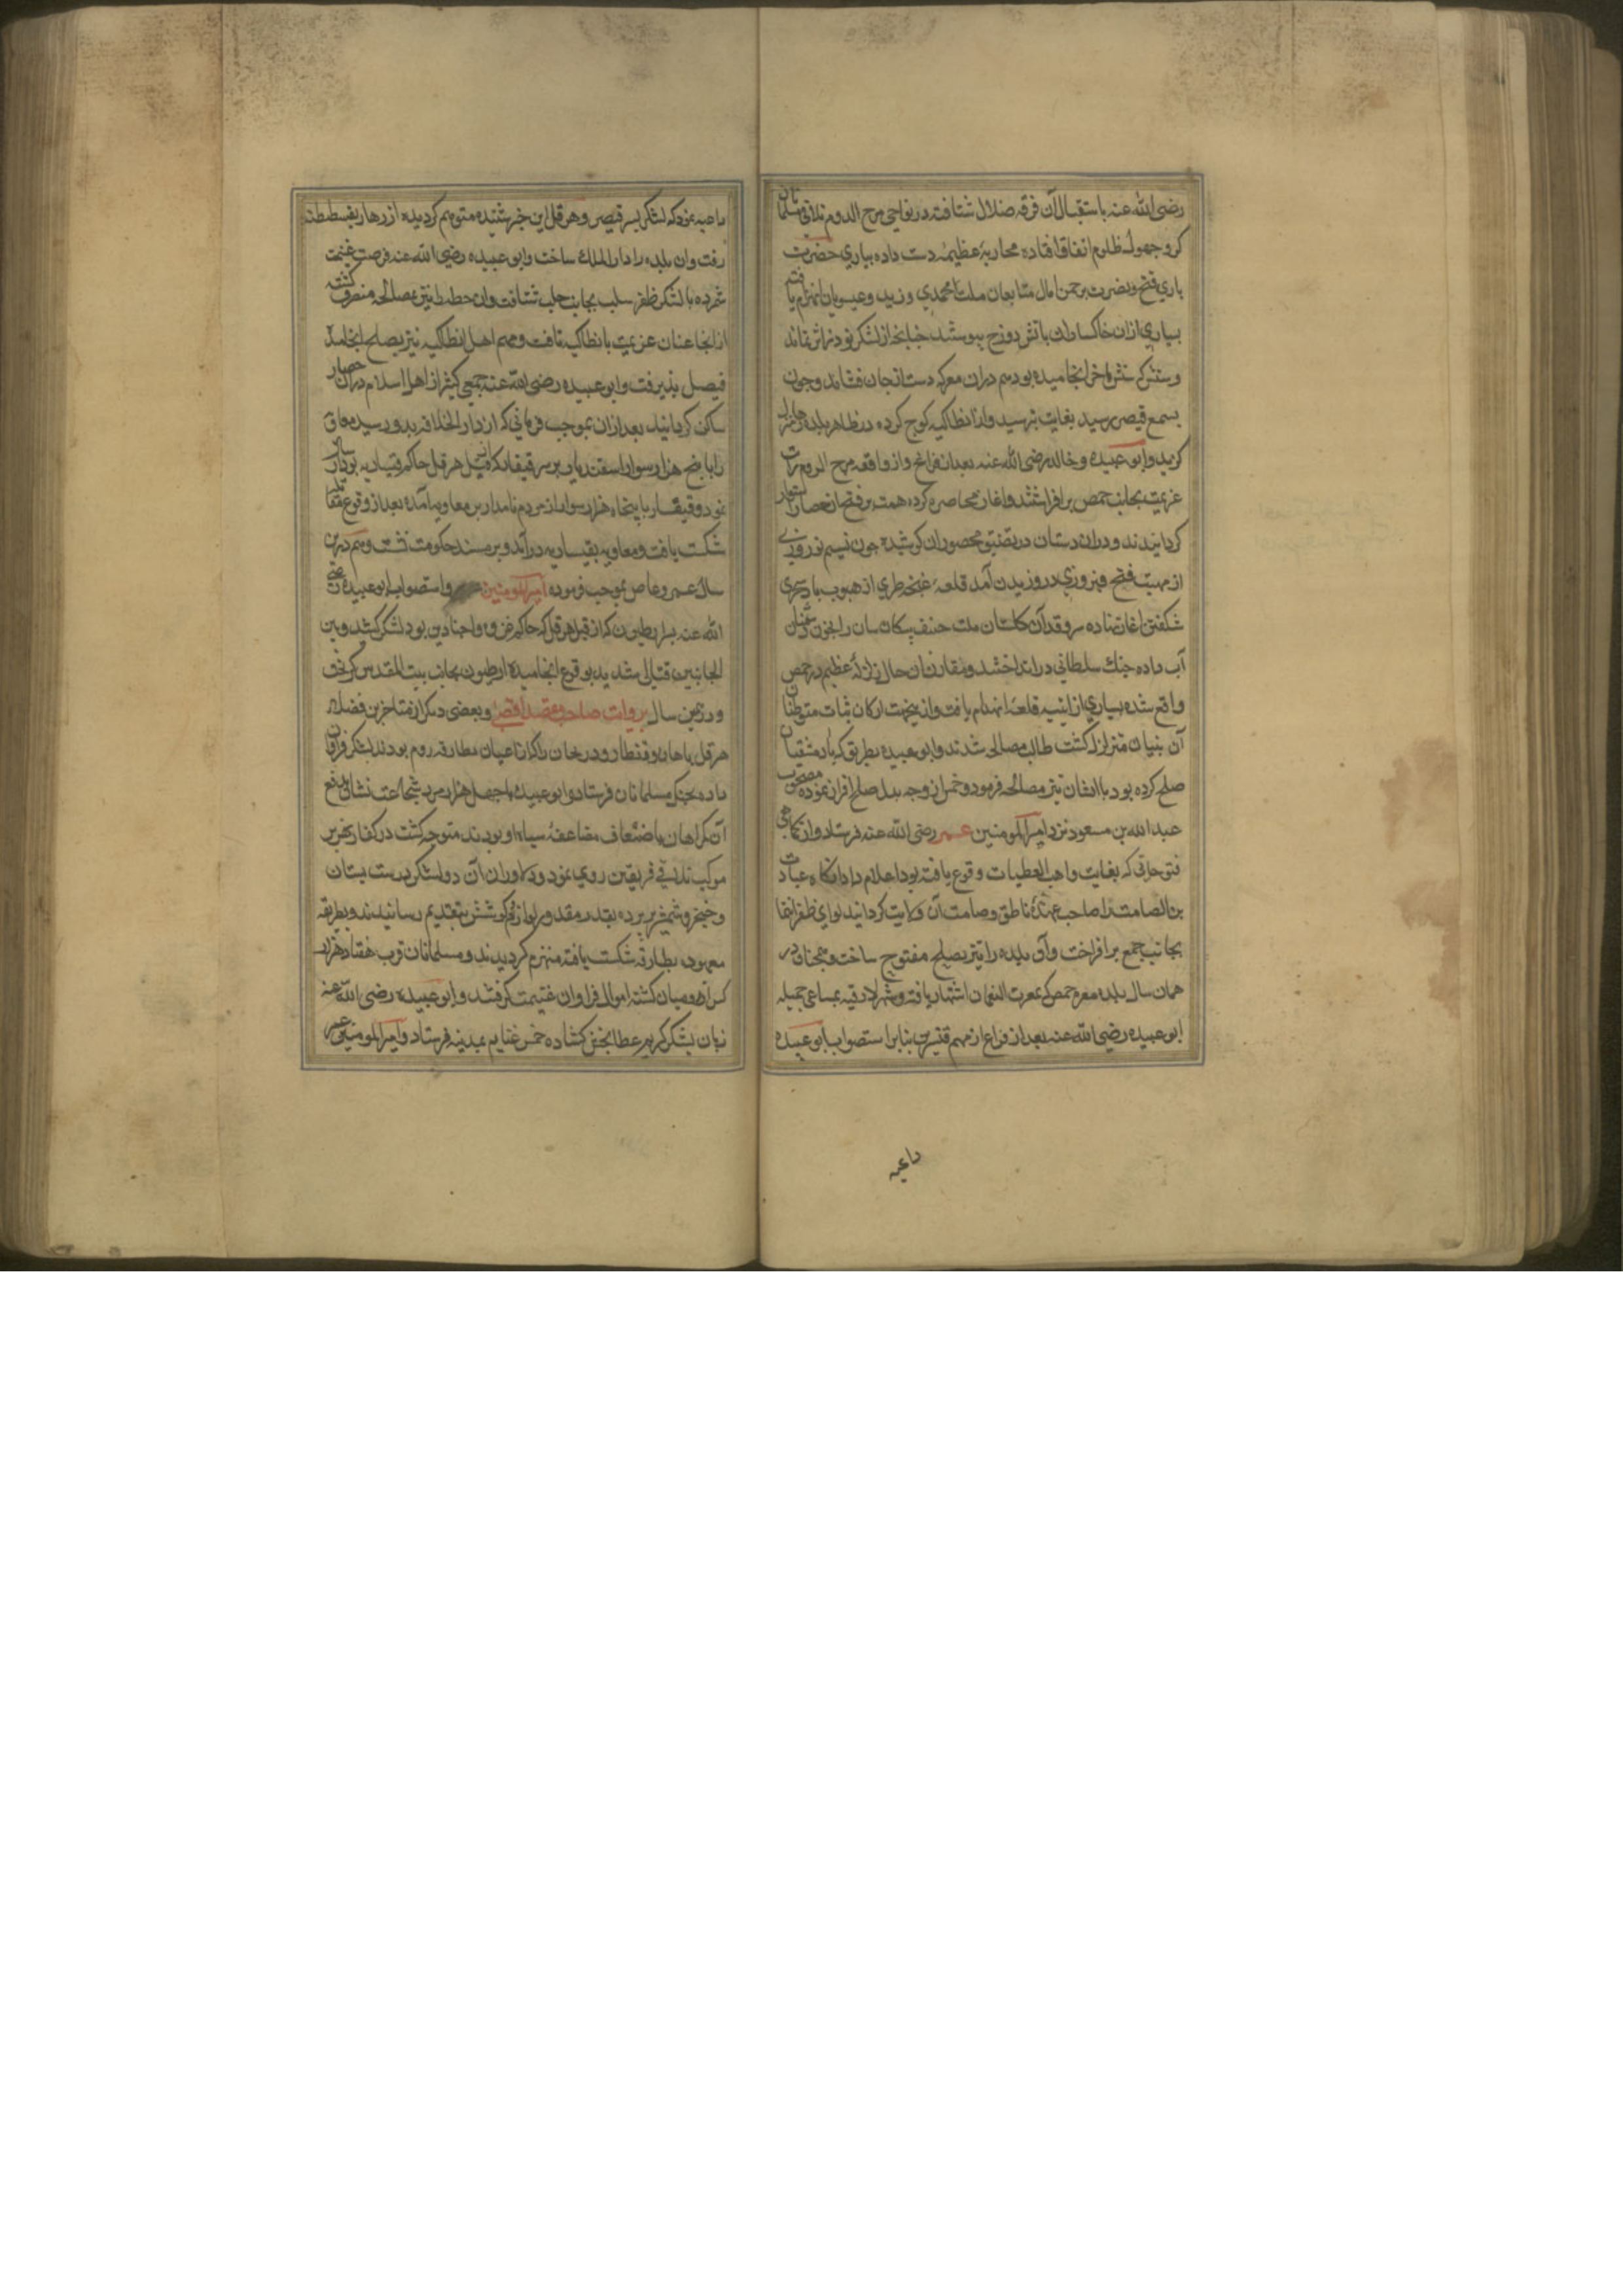 رضی الله عنه باستقبال آن فرقه ضلال شتافته در نواحی مرج الروم تلاقی مسلمانان
کروجهول ظلوم اتفاق افتاده محاربۀ عظیمه دست داده بیاری حضرت
باری فتح و نصرت برجمن امال متابعان ملت محمدی وزید وعیسویان انهزام یافتند
بسیاری ازان خاکساران باتش دوزخ پیوستند چنانچه از لشکر توذر اثر نماند
و شنس که شرما خر انجامیده بود هم دران معرکه دست از جان فشاند وچون
بسمع قیصر رسید بغایت بترسید واز انطاکیه کوچ کرده در ظاهر بلده رها منزل
کزید وابو عبیده و خالد رضی الله عنه بعد از فراغ از واقعه مرج الروم رایات
عزیمت بجانب حمص برافراشتند واغاز محاصره کرده همت بر فتح ان حصار استوار
کردانیدند و دران دستان در تضییق محصوران کوشیده چون نسیم نوروزی
از مهبت فتح فیروزی در وزیدن آمد قلعه غنچه طری از هبوب باد سحری
شکفتن اغاز نهاده سروقد آن کلستان ملت حنیف پیکان سان را بخون دشمنان
آب داده جنک سلطانی در انداختند و مقارن ان حال زلزلۀ عظیم در حمص
واقع شده بسیاری از ابنیه قلعه انهدام یافت وازینجهت ارکان ثبات متوطنان
آن بنیان متزلزل کشت طالب مصالحه شدند وابو عبیده بطریق که با دمشقیان
صلح کرده بود با ایشان نیز مصالحه فرمود و خمس از وجه بدل صلح افراز نموده مصحوب
عبدالله بن مسعود نزد امیرالمومنین عمر رضی الله عنه فرستاد واز کماهی
فتوحاتی که بغایت واهب العطیات وقوع یافته بود اعلام داد انکاه عبادة
بن الصامت را صاحب عهدۀ ناطق و صامت آن ولایت کردانید لوای ظفر انتما
بجانب جمع برافراخت وآن بلده را نیز بصلح مفتوح ساخت و همچنان در
همان سال بلده معره حمص که بمعرت النعمان اشتهار یافته و شهر لادقیه بمساعی جمیله
ابو عبیده رضی الله عنه بعد از فراغ از مهم قنسرین بنا بر استصواب ابو عبیده
داعیه
داعیه نمود که لشکر بسر قیصر وهرقل این خبر شنیده متوهم کردیده از رها بقسطنطنیه
رفت وان بلده را دار الملک ساخت وابو عبیده رضی الله عنه فرصت غنیمت
شمرده با لشکر ظفر سلب بجانب حلب شتافت وان خطه نیز بمصالحه متصرف کشته
از انجا عنان عزیمت بانطاکیه تافت ومهم اهل انطاکیه نیز بصلح انجامید
فیصل پذیرفت وابو عبیده رضی الله عنه جمعی کثیر از اهل اسلام دران حصار
ساکن کردانید بعد ازان بموجب فرمانی که از دار الخلافه بدو رسید معاویه
را با پنج هزار سوار اسفندیار بر سر قیقار که از قبل هرقل حاکم قیساریه بود ارسال
نمود وقیقار با پنجاه هزار سوار از مردم نامدار بر معاویه آمده بعد از وقوع تقابل
شکست یافت ومعاویه بقیساریه درآمد و بر مسند حکومت نشست وهم درین
سال عمرو عاص بموجب فرموده امیرالمومنین واستصواب ابو عبیده رضی
الله عنه بر ارطیون که از قبل هرقل که حاکم غزه واجنادین بود لشکر کشید وبین
الجانبین قتال شدید بوقوع انجامیده ارطیون بجانب بیت المقدس کریخت
ودرین سال بروایت صاحب مقصد اقصی وبعضی دیکر از متاخرین فضلا
هرقل ماهان وقنطار ودریحان را که از اعیان بطارقه روم بودند لشکر فراوان
داده بجنک مسلمانان فرستاد وابو عبیده با چهل هزار مرد شجاعت نشان بدفع
آن کمراهان باضعاف مضاعفه سپاه او بودند متوجه کشت در کنار نهر یر
موک تلاقی فریقین روی نمود ودلاوران آن دو لشکر دست بسنان
وخنجر وشمشیر برده بقدر مقدور لوازم کوشش بتقدیم رسانیدند وبطریقه
معهود بطارقه شکست یافته منهزم کردیدند ومسلمانان قرب هفتاد هزار
کس از رومیان کشته اموال فراوان غنیمت کرفتند وابو عبیده رضی الله عنه
زبان بشکر کریم عطابخش کشاده خمس غنایم بمدینه فرستاد وامیرالمومنین عمر